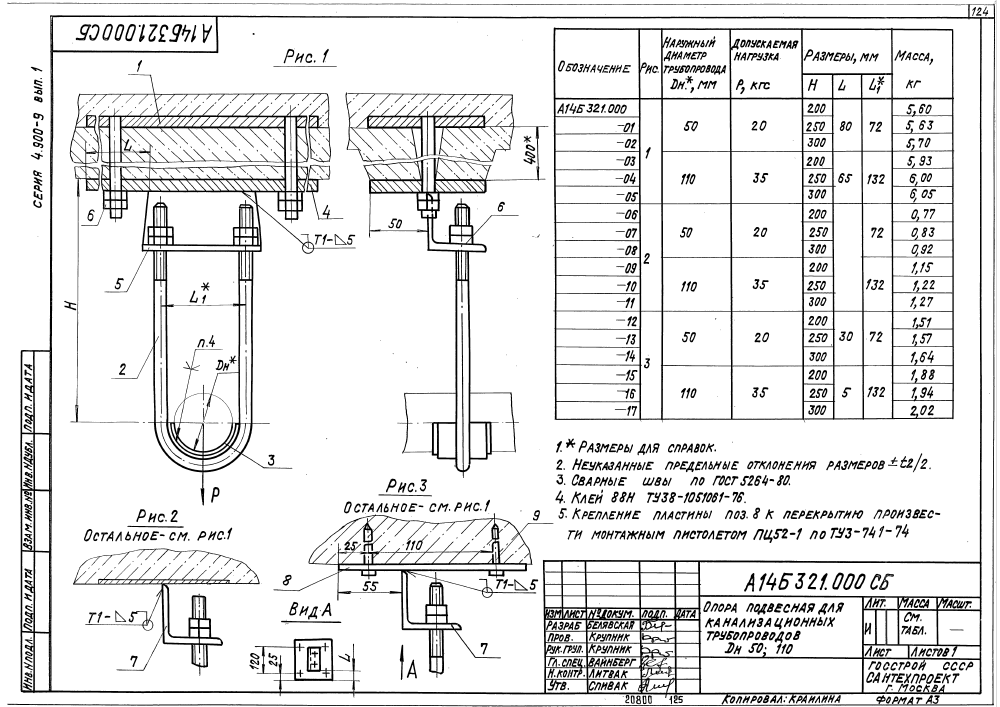 124
А14Б321.000СБ
СЕРИЯ 4.900-9 ВЫП. 1
Рис. 1
1
L
6
4
Т1-⊿5
5
H
L1*
п.4
Dн*
2
3
P
400*
50
6
Обозначение
Рис.
Наружный диаметр трубопровода Dн.*, мм
Допускаемая нагрузка Р, кгс
Размеры, мм
H L L1*
Масса, кг
А14Б 321.000 1 50 20 200 80 72 5,60
-01 250 5,63
-02 300 5,70
-03 110 35 200 65 132 5,93
-04 250 6,00
-05 300 6,05
-06 2 50 20 200 72 0,77
-07 250 0,83
-08 300 0,92
-09 110 35 200 132 1,15
-10 250 1,22
-11 300 1,27
-12 3 50 20 200 30 72 1,51
-13 250 1,57
-14 300 1,64
-15 110 35 200 5 132 1,88
-16 250 1,94
-17 300 2,02
1.* Размеры для справок.
2. Неуказанные предельные отклонения размеров ±t2/2.
3. Сварные швы по ГОСТ 5264-80.
4. Клей 88Н ТУ38-1051061-76.
5. Крепление пластины поз. 8 к перекрытию произвес-
ти монтажным пистолетом ПЦ52-1 по ТУ3-741-74
Рис. 2
Остальное-см. рис.1
Т1-⊿5
7
Рис.3
Остальное-см. рис.1
9
25
110
8
55
Т1-⊿5
7
А
Вид А
120
25
L
Инв.№подл.
Подп. и дата
Взам.инв.№
Инв.№дубл.
Подп. и дата
А14Б321.000 СБ
Изм Лист №докум. Подп. Дата
Разраб Белявская
Пров. Крупник
Рук.груп. Крупник
Гл.спец. Вайнберг
Н.контр. Литвак
Утв. Спивак
Опора подвесная для
канализационных
трубопроводов
Dн 50; 110
Лит. Масса Масшт.
И См. табл. —
Лист Листов 1
Госстрой СССР
Сантехпроект
г. Москва
20800 125
Копировал: Краилина
Формат А3